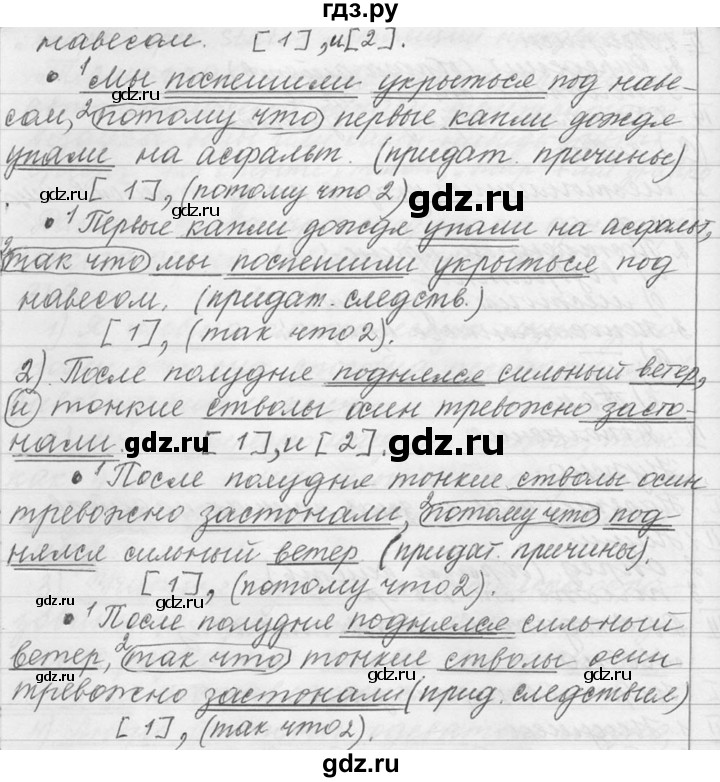 гдз.ру
навесом. [1], и [2].
• ¹Мы поспешили укрыться под наве-
сом, ²потому что первые капли дождя
упали на асфальт. (придат. причины)
gdz.ru [1], (потому что 2) gdz.ru
• ¹Первые капли дождя упали на асфальт,
²так что мы поспешили укрыться под
навесом, (придат. следств.)
[1], (так что 2).
2). После полудня поднялся сильный ветер,
и тонкие стволы осин тревожно засто-
нали. gdz.ru [1], и [2]. gdz.ru
• ¹После полудня тонкие стволы осин
тревожно застонали, ²потому что под-
нялся сильный ветер (придат. причины).
gdz.ru [1], (потому что 2). gdz.ru
• ¹После полудня поднялся сильный
ветер, ²так что тонкие стволы осин
тревожно застонали (прид. следствия)
gdz.ru gdz.ru
[1], (так что 2).
gdz.ru